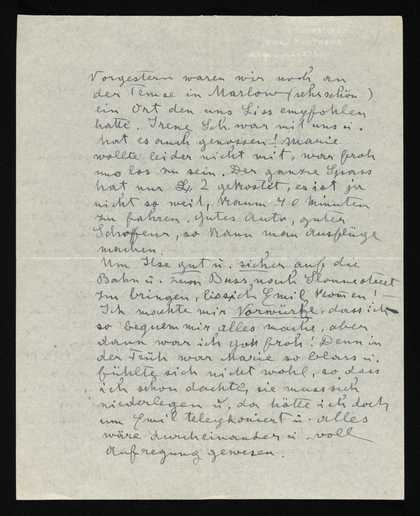 Vorgestern waren wir noch an
der Temse in Marlow (sehr schön)
ein Ort den uns Liss empfohlen
hatte. Irene Sch. war mit uns u.
hat es auch genossen! Marie
wollte leider nicht mit, war froh
uns los zu sein. Der ganze Spass
hat nur £ 2 gekostet, es ist ja
nicht so weit, kaum 40 Minuten
zu fahren. Gutes Auto, guter
Schoffeur, so kann man Ausflüge
machen.
Um Ilse gut u. sicher auf die
Bahn u. zum Buss, nach
zu bringen, liess ich Emil kommen! –
Ich machte mir Vorwürfe, dass ich
so bequem mir alles mache, aber
dann war ich froh! Denn in
der Früh war Marie so blass u.
fühlte sich nicht wohl, so, dass
ich schon dachte, sie muss sich
niederlegen u. da hätte ich doch
um Emil telephoniert u. alles
wäre durcheinander u. voll
Aufregung gewesen.